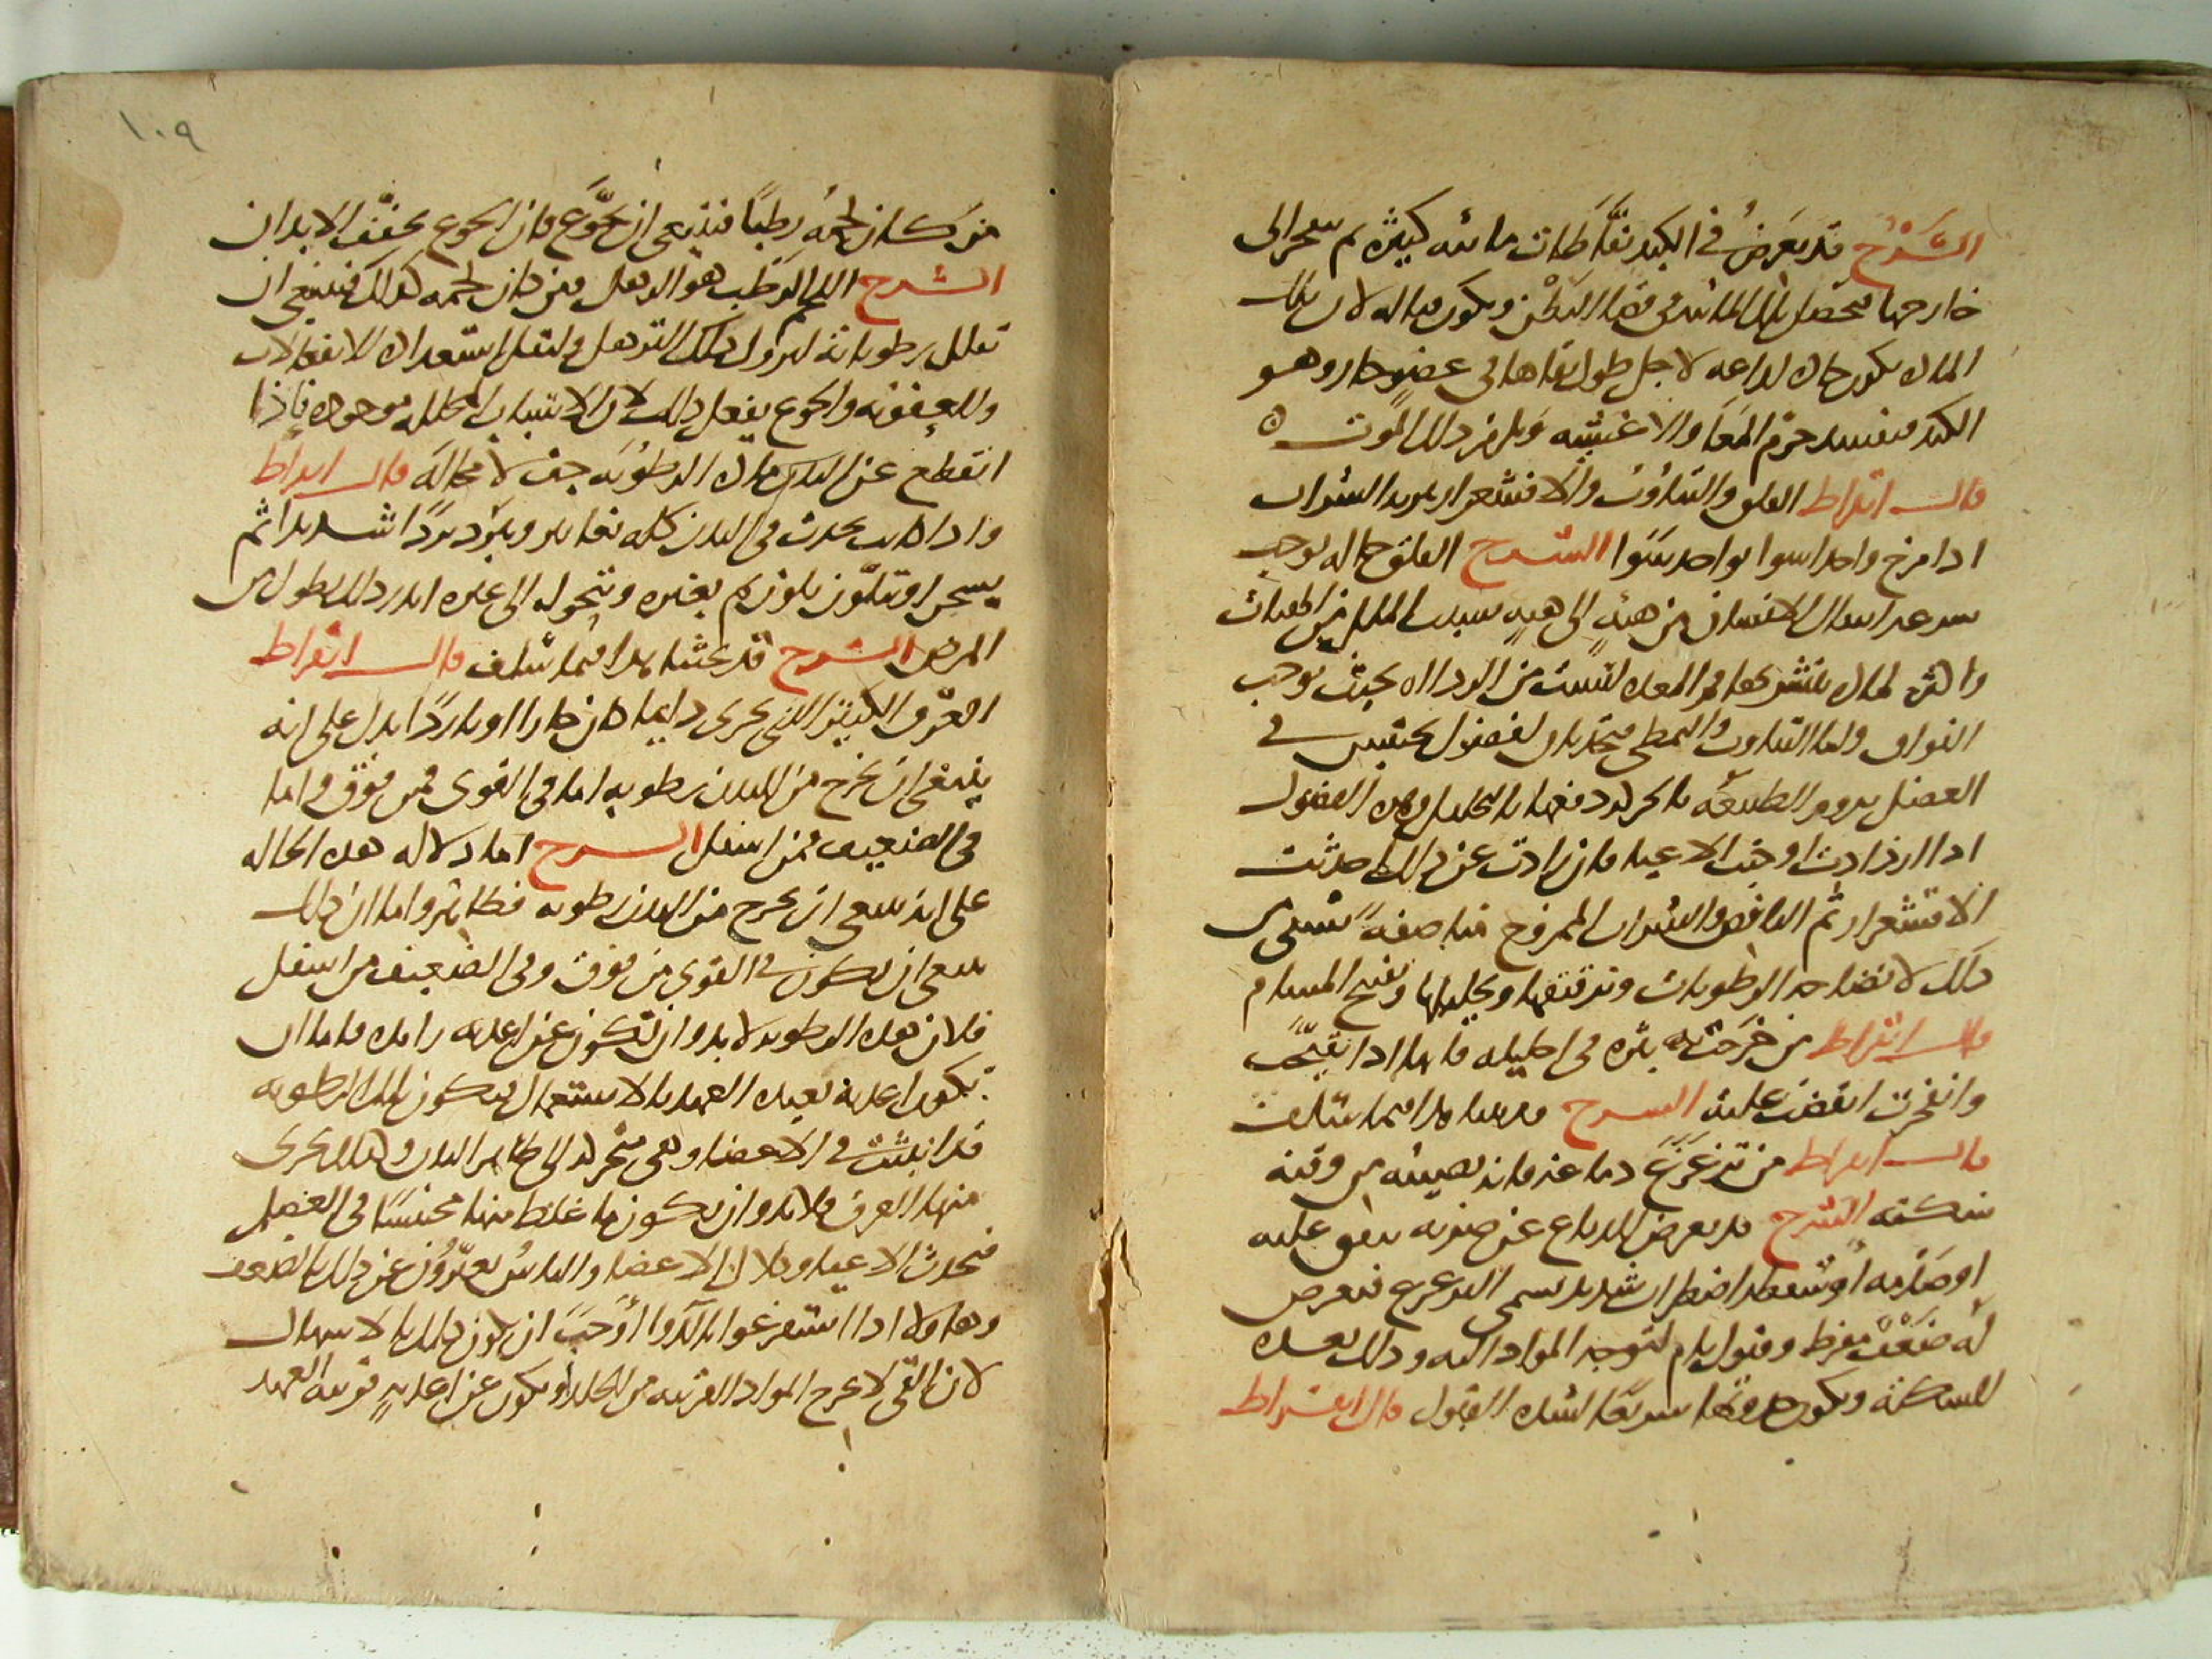 الشَّرْح قد يَعرَضُ في الكبد نفّاطات مائيه كثيره ثم تنفجر الى
خارجها فيحصل تلك المائيه في فضا البَطْن ويكون قتاله لان تلك
الماده يكون حاده لداعه لاجل طول بقاها في عضوٍ حار وهو
الكبد فيفسد جرم المعا والاغشيه ويلزم ذلك الموت ه
قال ابقراط القلق والتثاؤب والاقشعرار يبريه الشراب
اذا مزج واحد سوا بواحد سَوَا الشرح القلق حاله توجب
سرعه انتقال الانسان من هيئهٍ الى هيئهٍ بسبب الملل من الهيئات
واكثره لماده يتشربها فم المعده ليست من الرداه بحيث توجب
الفواق واما التثاوب والتمطي فيحدثان لفضول تحتبس في
العضل تروم الطبيعه بالحركه دفعها بالتحليل وهذه الفضول
اذا ازدادت اوجبت الاعيا فان زادت عن ذلك احدثت
الاقشعرار ثم النافض والشراب الممزوج مناصفهً يشفي من
ذلك لانضاجه الرطوبات وترقيقها وتحليلها وتفتيح المسام
قال ابقراط من خَرَجَت به بثره في احليله فانها اذا تقيّحت
وانفجرت انقضت علته الشرح قد بحثنا هذا فيما سلف
قال ابقراط من تزَعْزَعَ دماغه فانه يصيبه من وقته
سكته الشرح قد يعرض للدماغ عن ضربه تقع عليه
او صَدْمه او سَقطه اضطراب شديد يسمى التزعزع فيعرض
له ضَعْفٌ مفرط وقبول تام لتوجه المواد اليه وذلك يعده
للسكته ويكون حدوثها سريعًا لشده القبول قال ابقراط
١٠٩
من كان لحمُه رطبًا فينبغي ان يجَوَّع فان الجوع يجفّف الابدان
الشرح اللحم الرَطب هو الرهل ومن كان لحمه كذلك فينبغي ان
تقلل رطوباته ليزول ذلك الترهل وليقل استعداده للانفعالات
وللعفونه والجوع يفعل ذلك لان الاسباب المحلله موجوده فاذا
انقطع عن البدن ماده الرطوبَه جف لا محالهَ قال ابقراط
واذا كانت يحدث في البدن كله تغايير ويَبرُد بردًا شديدا ثم
يسخن او يتلوّن بلون ثم بغيره ويتحول الى غيره انذر ذلك بطول من
المرض الشرح قد بحثنا هذا فيما سلف قال ابقراط
العَرَق الكثير الذي يجري دايما كان حارا او باردًا يدل على انه
ينبغي ان يخرج من البدن رطوبه اما في القوي فمن فوق واما
في الضعيف فمن اسفل الشرح اما دلاله هذه الحاله
على انه ينبغي ان يخرج من البدن رطوبه فظاهر واما ان ذلك
ينبغي ان يكون في القوي من فوق وفي الضعيف من اسفل
فلان هذه الرطوبه لابد وان تكون عن اغذيه زايده فاما ان
تكون اغذيه بعيده العهد بالاستعمال فيكون تلك الرطوبه
قد انبثت في الاعضا وهي متحركه الى ظاهر البدن ولذلك يجري
منها العرق فلا بد وان يكون ما غلظ منها محتبسًا في العضل
فيحدث الاعيا وكلال الاعضا والناس يعبّرُون عن ذلك بالضعف
وهاولاء اذا استفرغوا بالدَّوا اوجَبَ ان يكون ذلك بالاسهال
لان القي لا يخرج المواد القريبه من الجلد او يكون عن اغذيهٍ قريبه العهد